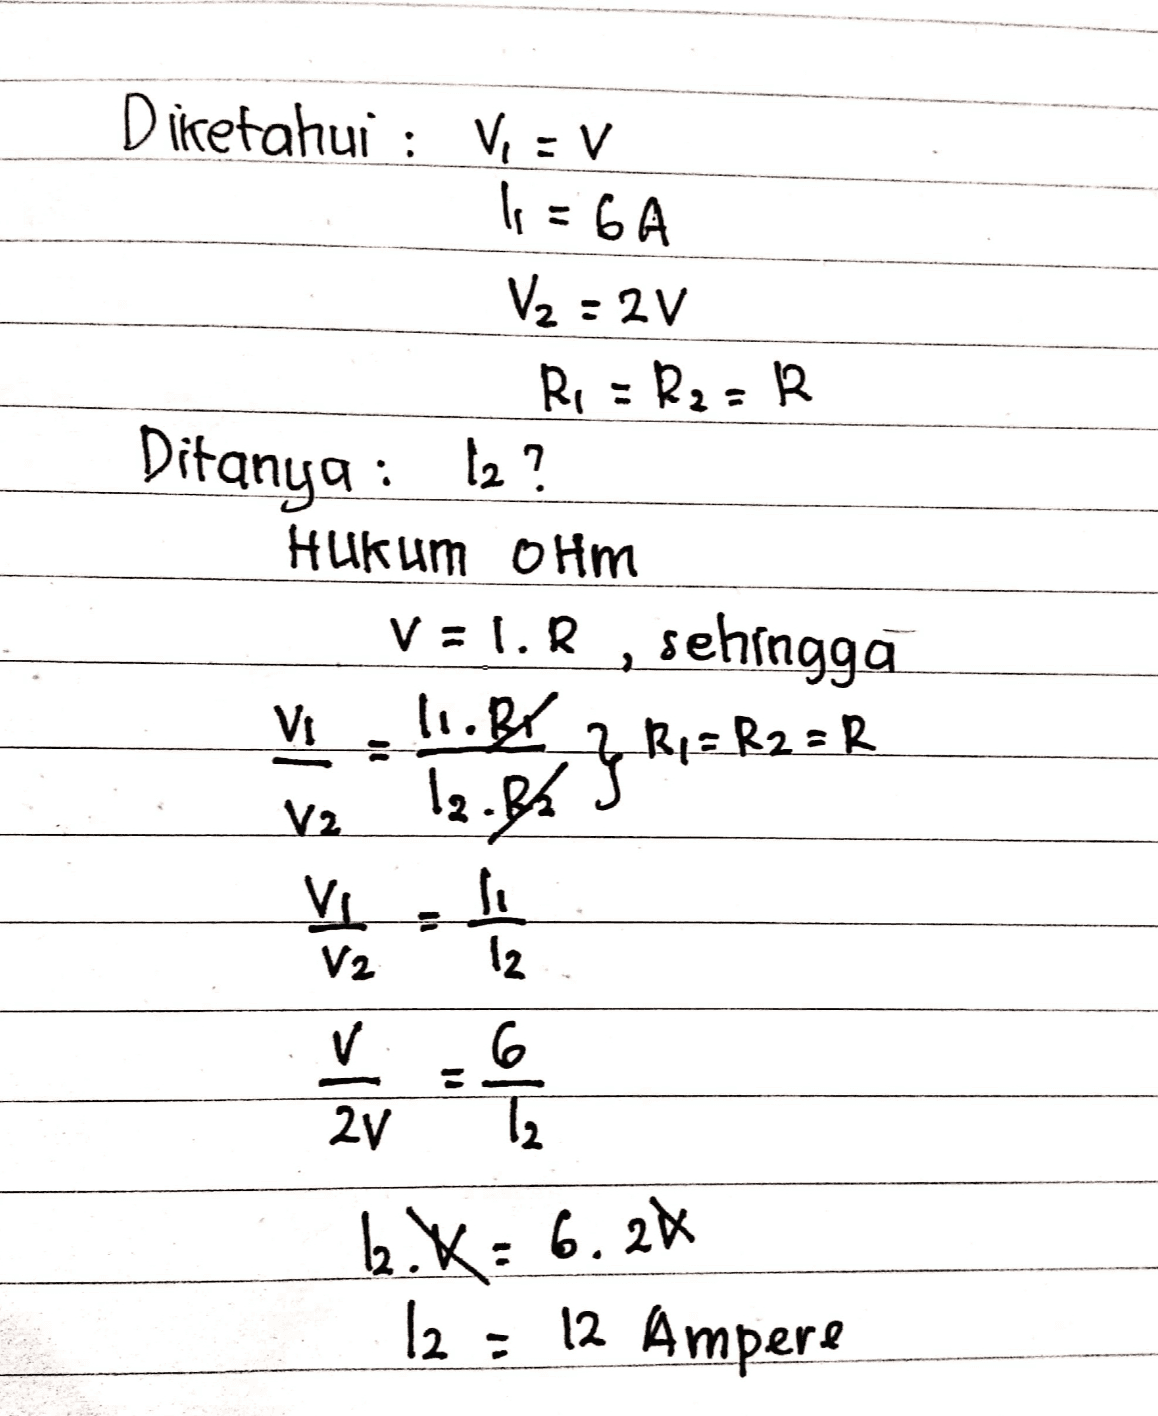 Diketahui : V₁ = V
I₁ = 6 A
V₂ = 2 V
R₁ = R₂ = R
Ditanya : I₂ ?
Hukum OHm
V = I . R , sehingga
V₁/V₂ = I₁ . R₁/I₂ . R₂ } R₁ = R₂ = R
V₁/V₂ = I₁/I₂
V/2V = 6/I₂
I₂ . V = 6 . 2V
I₂ = 12 Ampere